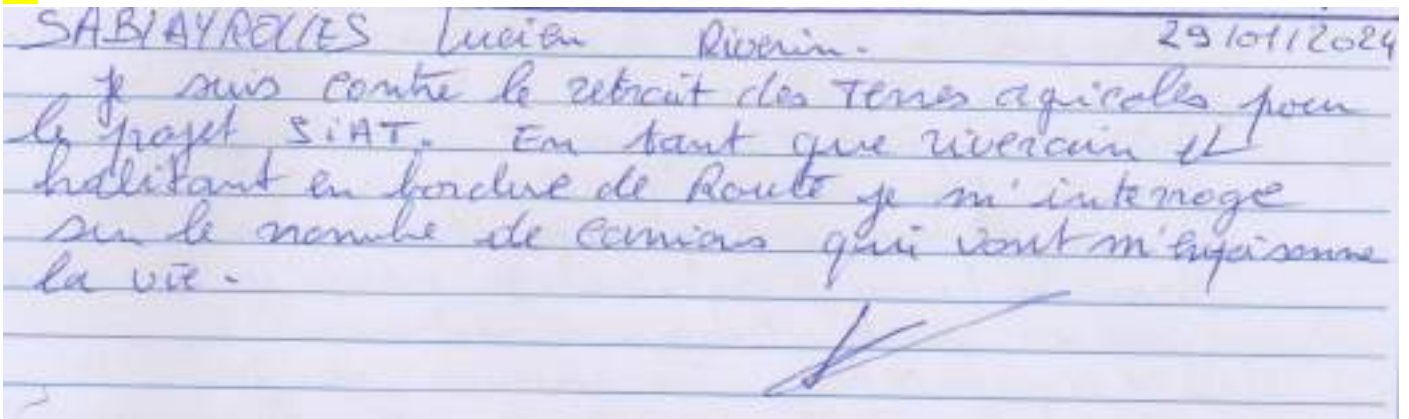 SABLAYROLLES Lucien Riverin. 29/01/2024
je suis contre le retrait des Terres agricoles pour
le projet SiAT. En tant que riverain et
habitant en bordure de Route je m'interroge
sur le nombre de camions qui vont m'empoisonne
la vie.